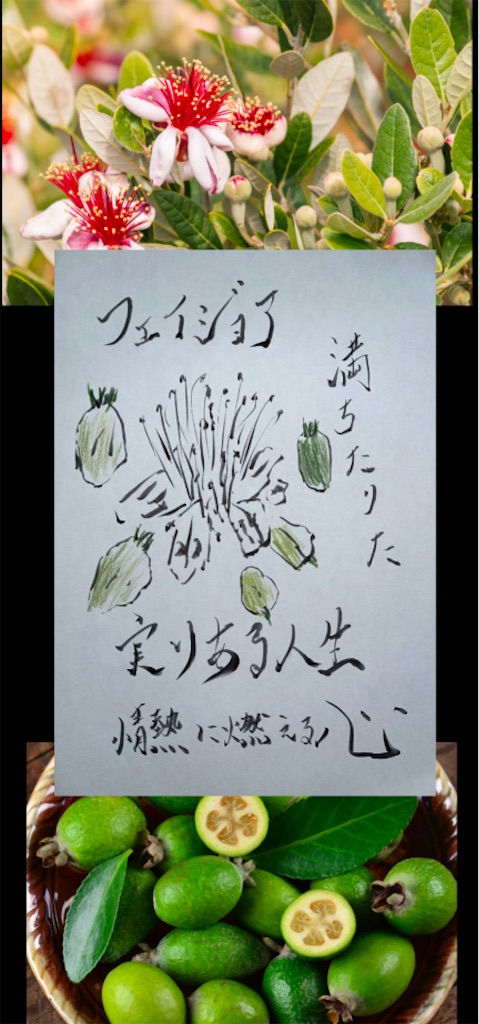 フェイジョア
満ちたりた
実りある人生
情熱に燃える心